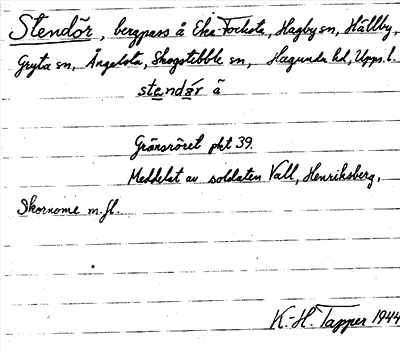 Stendör, bergpass å Eka-Focksta, Hagby sn, Hällby,
Gryta sn, Ängelsta, Skogstibble sn, Hagunda hd, Upps. l.
stendǟr ã
Gränsröret pkt 39.
Meddelat av soldaten Vall, Henriksberg,
Skornome m.fl.
K. H. Tapper 1944